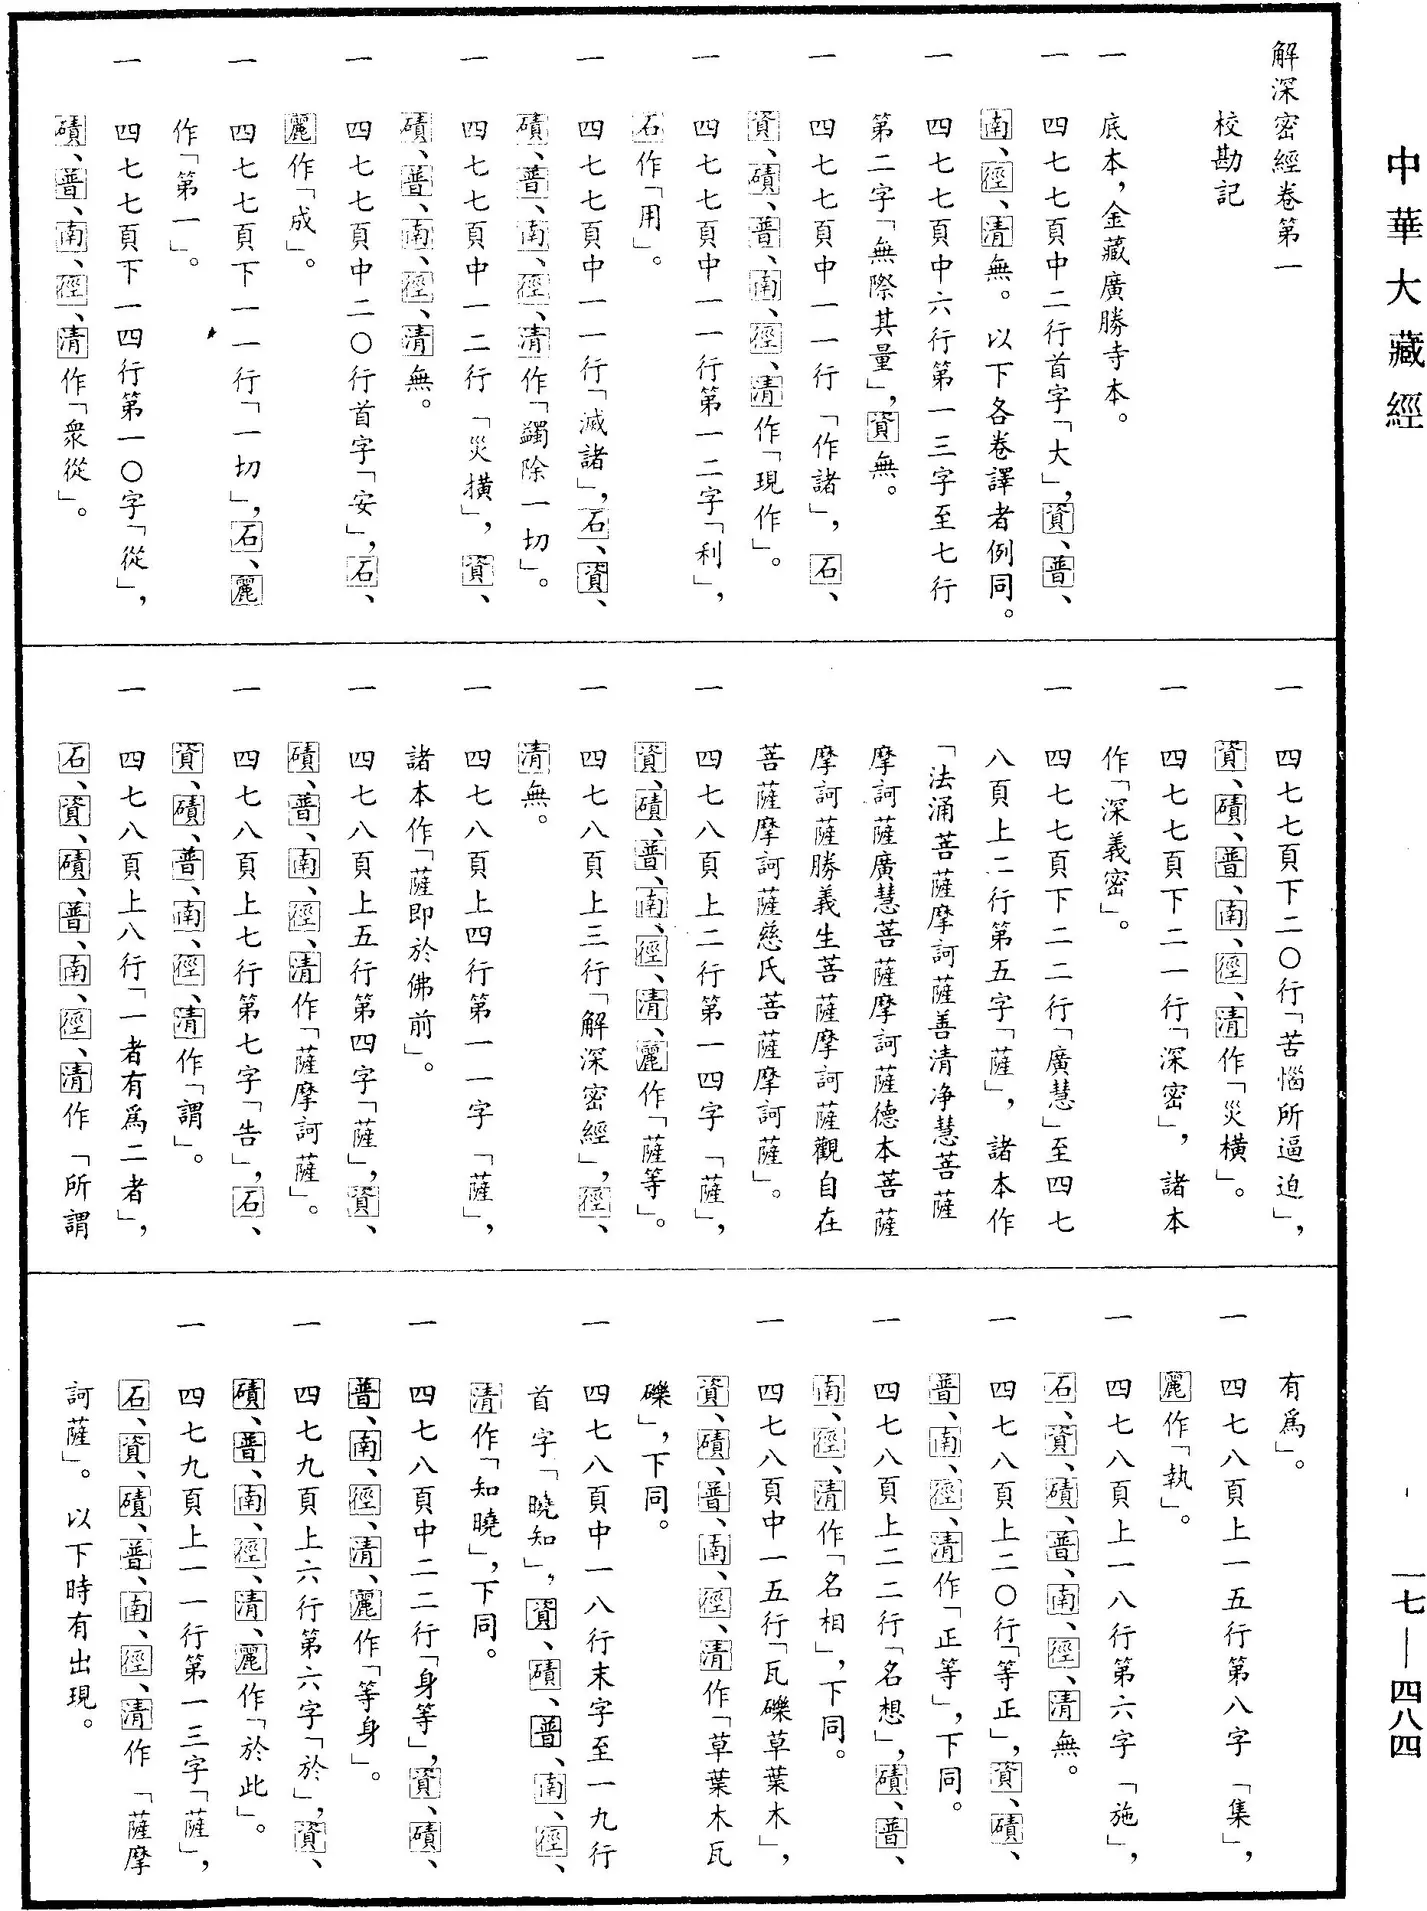 中華大藏經
解深密經卷第一
校勘記
一 底本，金藏廣勝寺本。
一 四七七頁中二行首字「大」，資、普、
南、徑、清無。以下各卷譯者例同。
一 四七七頁中六行第一三字至七行
第二字「無際其量」，資無。
一 四七七頁中一一行「作諸」，石、
資、磧、普、南、徑、清作「現作」。
一 四七七頁中一一行第一二字「利」，
石作「用」。
一 四七七頁中一一行「滅諸」，石、資、
磧、普、南、徑、清作「蠲除一切」。
一 四七七頁中一二行「災撗」，資、
磧、普、南、徑、清無。
一 四七七頁中二〇行首字「安」，石、
麗作「成」。
一 四七七頁下一一行「一切」，石、麗
作「第一」。
一 四七七頁下一四行第一〇字「從」，
磧、普、南、徑、清作「衆從」。
一 四七七頁下二〇行「苦惱所逼迫」，
資、磧、普、南、徑、清作「災橫」。
一 四七七頁下二一行「深密」，諸本
作「深義密」。
一 四七七頁下二二行「廣慧」至四七
八頁上二行第五字「薩」，諸本作
「法涌菩薩摩訶薩善清净慧菩薩
摩訶薩廣慧菩薩摩訶薩德本菩薩
摩訶薩勝義生菩薩摩訶薩觀自在
菩薩摩訶薩慈氏菩薩摩訶薩」。
一 四七八頁上二行第一四字「薩」，
資、磧、普、南、徑、清、麗作「薩等」。
一 四七八頁上三行「解深密經」，徑、
清無。
一 四七八頁上四行第一一字「薩」，
諸本作「薩即於佛前」。
一 四七八頁上五行第四字「薩」，資、
磧、普、南、徑、清作「薩摩訶薩」。
一 四七八頁上七行第七字「告」，石、
資、磧、普、南、徑、清作「謂」。
一 四七八頁上八行「一者有爲二者」，
石、資、磧、普、南、徑、清作「所謂
有爲」。
一 四七八頁上一五行第八字「集」，
麗作「執」。
一 四七八頁上一八行第六字「施」，
石、資、磧、普、南、徑、清無。
一 四七八頁上二〇行「等正」，資、磧、
普、南、徑、清作「正等」，下同。
一 四七八頁上二二行「名想」，磧、普、
南、徑、清作「名相」，下同。
一 四七八頁中一五行「瓦礫草葉木」，
資、磧、普、南、徑、清作「草葉木瓦
礫」，下同。
一 四七八頁中一八行末字至一九行
首字「曉知」，資、磧、普、南、徑、
清作「知曉」，下同。
一 四七八頁中二二行「身等」，資、磧、
普、南、徑、清、麗作「等身」。
一 四七九頁上六行第六字「於」，資、
磧、普、南、徑、清、麗作「於此」。
一 四七九頁上一一行第一三字「薩」，
石、資、磧、普、南、徑、清作「薩摩
訶薩」。以下時有出現。
一七—四八四